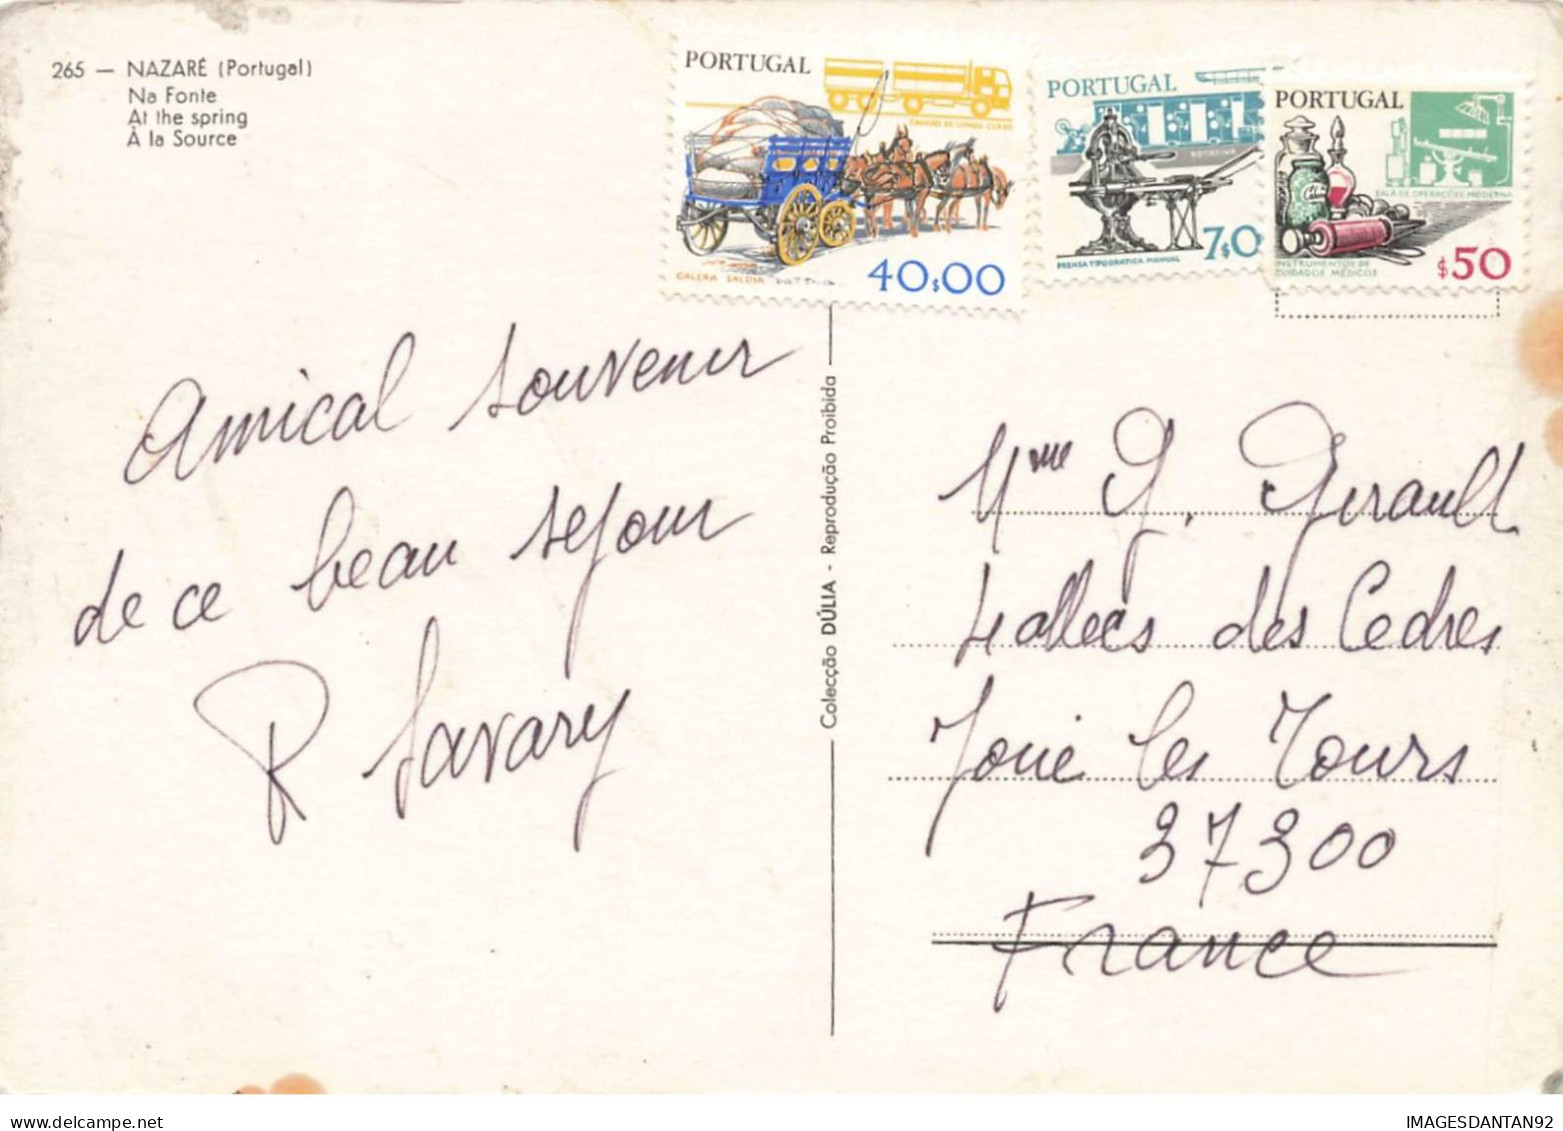 265 — NAZARÉ (Portugal)
Na Fonte
At the spring
À la Source
PORTUGAL
CAMIÃO DE LONGO CURSO
GALERA SALOIA
40$00
PORTUGAL
PRENSA TIPOGRÁFICA MANUAL
7$0
PORTUGAL
SALA DE OPERAÇÕES MODERNA
INSTRUMENTOS DE
CUIDADOS MÉDICOS
$50
Amical souvenir
de ce beau séjour
R Savary
Colecção DÚLIA - Reprodução Proibida
Mme G. Girault
4 allées des Cedres
Joué les Tours
37300
France
IMAGESDANTAN92